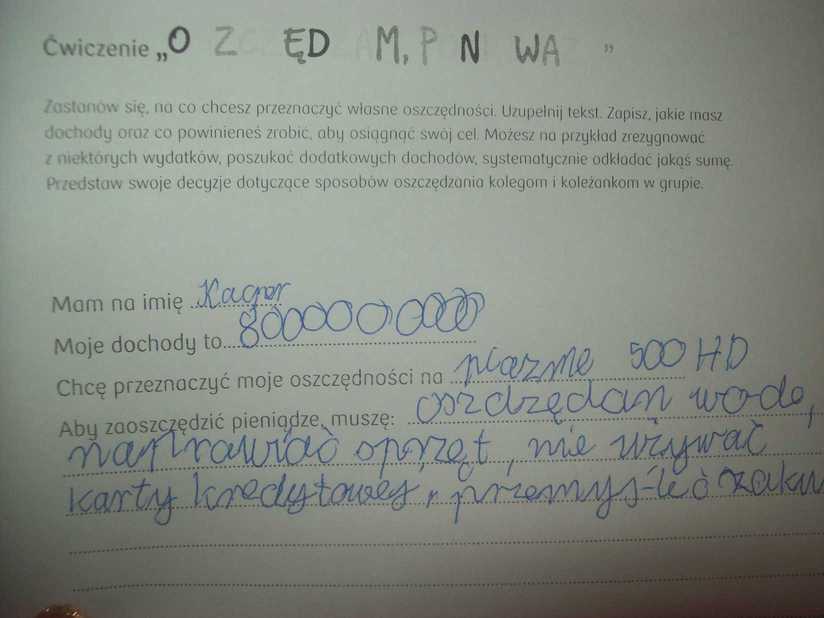 Ćwiczenie „O Z ĘD M, P N WA ”
Zastanów się, na co chcesz przeznaczyć własne oszczędności. Uzupełnij tekst. Zapisz, jakie masz
dochody oraz co powinieneś zrobić, aby osiągnąć swój cel. Możesz na przykład zrezygnować
z niektórych wydatków, poszukać dodatkowych dochodów, systematycznie odkładać jakąś sumę.
Przedstaw swoje decyzje dotyczące sposobów oszczędzania kolegom i koleżankom w grupie.
Mam na imię Kacper
Moje dochody to
Chcę przeznaczyć moje oszczędności na plazmę 500 HD
Aby zaoszczędzić pieniądze, muszę: wodę,
naprawiać sprzęt, nie używać
karty kredytowej, przemyśleć zaku